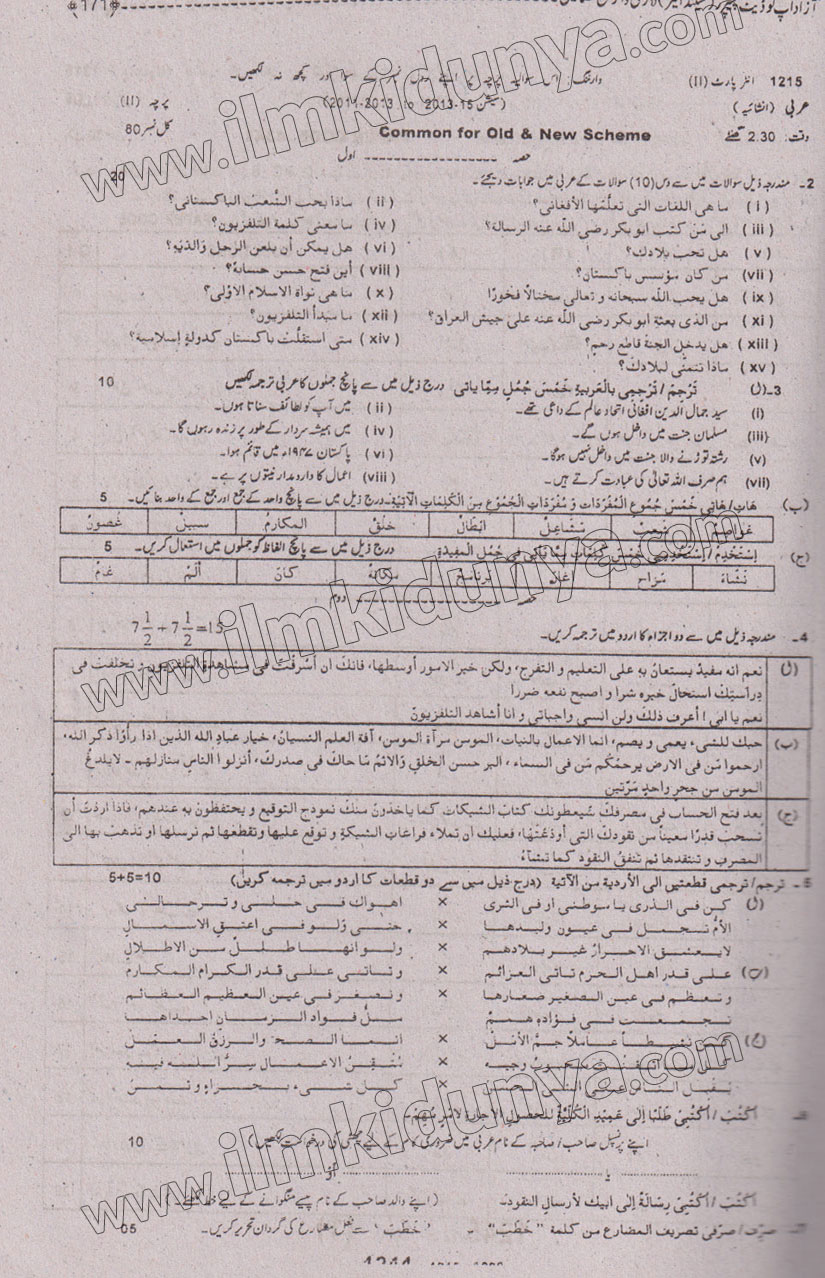 1215 انٹر پارٹ (II) وارننگ: اس سوالیہ پرچہ پر اپنے رول نمبر کے سوا اور کچھ نہ لکھیں۔
عربی (انشائیہ) (سیشن 15-2013 to 2011-2013) پرچہ (II)
وقت: 2.30 گھنٹے Common for Old & New Scheme کل نمبر 80
حصہ ---------------- اول
2۔ مندرجہ ذیل سوالات میں سے دس (10) سوالات کے عربی میں جوابات دیجئے۔ 20
(i) ما هى اللغات التى تعلّمها الأفغانى؟ (ii) ماذا يحب الشّعب الباكستانى؟
(iii) الى مَن كتب ابو بكر رضى الله عنه الرسالة؟ (iv) ما معنى كلمة التلفزيون؟
(v) هل تحب بلادك؟ (vi) هل يمكن أن يلعن الرجل والديه؟
(vii) من كان مؤسس باكستان؟ (viii) أين فتح حسن حسابهٗ؟
(ix) هل يحب الله سبحانه و تعالى مختالاً فخورًا؟ (x) ما هى نواة الاسلام الاوّلى؟
(xi) من الذى بعثهٗ ابو بكر رضى الله عنه على جيش العراق؟ (xii) ما مبدأ التلفزيون؟
(xiii) هل يدخل الجنة قاطع رحم؟ (xiv) متى استقلّت باكستان كدولةٍ إسلامية؟
(xv) ماذا تتمنّى لبلادك؟
3۔ (ل) تَرجِمْ / تَرْجِمِى بالعَربيةِ خَمْسَ جُمَلٍ مِمّا ياتى درج ذیل میں سے پانچ جملوں کا عربی ترجمہ لکھیں 10
(i) سید جمال الدین افغانی اتحاد عالم کے داعی تھے۔ (ii) میں آپ کو لطائف سناتا ہوں۔
(iii) مسلمان جنت میں داخل ہوں گے۔ (iv) میں ہمیشہ سردار کے طور پر زندہ رہوں گا۔
(v) رشتہ توڑنے والا جنت میں داخل نہیں ہوگا۔ (vi) پاکستان ۱۹۴۷ء میں قائم ہوا۔
(vii) ہم صرف اللہ تعالیٰ کی عبادت کرتے ہیں۔ (viii) اعمال کا دارومدار نیتوں پر ہے۔
(ب) هَاتِ/هَاتِى خَمْسَ جُموعِ المُفْرَدَات وَ مُفْرَدَاتِ الجُمُوْعِ مِنَ الْكَلِمَاتِ الْآتِيَةِ۔ درج ذیل میں سے پانچ واحد کے جمع اور جمع کے واحد بنائیں۔ 5
شعب مشاعل ابطال خلق المكارم سبيل غصون
(ج) إسْتَخْدِمْ/إسْتَخْدِمِى خَمْسَ كَلِمَاتٍ مِمَّا يَأتى فى جُمَلٍ المفيدة۔ درج ذیل میں سے پانچ الفاظ کو جملوں میں استعمال کریں۔ 5
نشاء مزاح برنامج كان ألم
حصہ ---------------- دوم
4۔ مندرجہ ذیل میں سے دو اجزاء کا اردو میں ترجمہ کریں۔ 7 1/2 + 7 1/2 = 15
(ل) نعم انه مفيد يستعان به على التعليم و التفرج، ولكن خير الامور أوسطها، فانك ان أسرفت فى مشاهدة التلفزيون و تخلفت فى
دراستك استحال خيره شرا و اصبح نفعه ضررا
نعم يا ابى! أعرف ذلك ولن انسى واجباتى و انا أشاهد التلفزيون
(ب) حبك للشىء يعمى و يصم، انما الاعمال بالنيات، المومن مرآة المومن، آفة العلم النسيان، خيار عباد الله الذين اذا رأوا ذكر الله،
ارحموا من فى الارض يرحمكم من فى السماء، البر حسن الخلق والاثم ما حاك فى صدرك، أنزلوا الناس منازلهم ۔ لايلدغ
المومن من جحر واحد مرّتين
(ج) بعد فتح الحساب فى مصرفك سيعطونك كتاب الشيكات كما ياخذون منك نموذج التوقيع و يحتفظون به عندهم، فاذا اردت أن
تسحب قدرًا معينًا من نقودك التى أودعْتَهَا، فعليك ان تملاء فراغات الشيكة و توقع عليها وتقطعها ثم ترسلها او تذهب بها الى
المصرف و تنتقدها ثم تنفق النقود كما تشآء
5۔ ترجم/ترجمى قطعتين الى الأردية من الآتية (درج ذیل میں سے دو قطعات کا اردو میں ترجمہ کریں) 5+5=10
(ل) كن فى الذرى يا موطنى او فى الثرى × اهواك فى حلى و ترحالى
الأم تجمل فى عيون وليدها × حتى ولو فى اعتق الاسمال
لايعشق الاحرار غير بلادهم × ولو انها طلل من الاطلال
(ب) على قدر اهل العزم تاتى العزائم × و تاتى على قدر الكرام المكارم
و تعظم فى عين الصغير صغارها × و تصغر فى عين العظيم العظائم
تجمعت فى فؤاده همم × ملُ فواد الزمان احداها
(ج) نشيطاً عاملاً جمّ الأمل × انما الصحة والرزق العمل
محبوب وجيه × متقن الاعمال سرّ الله فيه
يقبل الناس على الشىء الحسن × كل شىء بجزاء و ثمن
6۔ اكتُبْ / اُكْتُبِىْ طَلَبًا إلى عَمِيدِ الْكُلّيّةِ للحصولِ الاجازة لامرٍ مُهِمّ۔
اپنے پرنسپل صاحب/صاحبہ کے نام عربی میں ضروری کام کے لیے چھٹی کی درخواست لکھیں) 10
یا أو
اكتب / اُكْتُبِى رِسَالَةً إلى ابيك لأرسال النقود۔ (اپنے والد صاحب کے نام پیسے منگوانے کے لیے خط لکھیے۔)
7۔ صرّف/صرّفى تصريف المضارع من كلمة "خَطَبَ" ۔ "خَطَبَ" سے فعل مضارع کی گردان تحریر کریں۔ 05
www.ilmkidunya.com
www.ilmkidunya.com
www.ilmkidunya.com